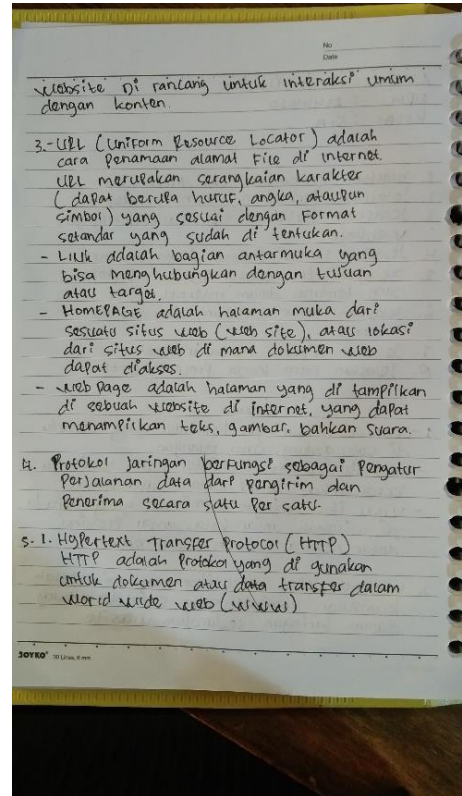 No
Date
website Di rancang untuk interaksi umum
dengan konten.
3.- URL (Uniform Resource Locator) adalah
cara Penamaan alamat File di internet.
URL merupakan serangkaian karakter
(dapat berupa huruf, angka, ataupun
simbol) yang sesuai dengan Format
setandar yang sudah di tentukan.
- Link adalah bagian antarmuka yang
bisa menghubungkan dengan tujuan
atau target.
- HOMEPAGE adalah halaman muka dari
sesuatu situs web (web site), atau lokasi
dari situs web di mana dokumen web
dapat diakses.
- web page adalah halaman yang di tampilkan
di sebuah website di internet, yang dapat
menampilkan teks, gambar, bahkan suara.
4. Protokol Jaringan berfungsi sebagai Pengatur
Perjalanan data dari pengirim dan
Penerima secara satu Per satu.
5. 1. Hypertext Transfer Protocol (HTTP)
HTTP adalah Protokol yang di gunakan
untuk dokumen atau data transfer dalam
World wide web (www)
JOYKO 30 Lines, 6 mm